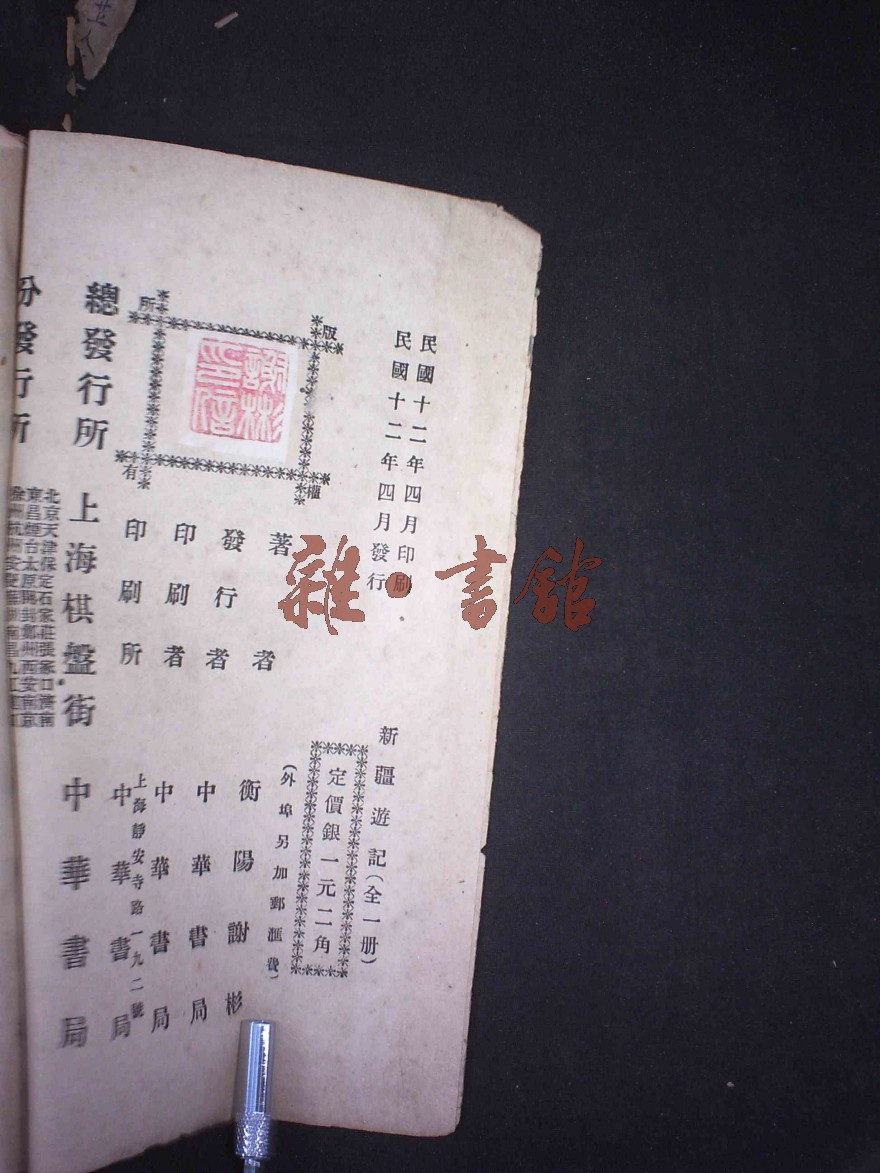 民國十二年四月印刷
民國十二年四月發行
新疆遊記(全一册)
定價銀一元二角
(外埠另加郵滙費)
版權所有
謝彬印信
著者 衡陽謝彬
發行者 中華書局
印刷者 中華書局
上海靜安寺路一九二號
印刷所 中華書局
總發行所 上海棋盤街 中華書局
分發行所
北京天津保定石家莊張家口濟南
東昌煙台太原開封鄭州西安南京
雜·書館